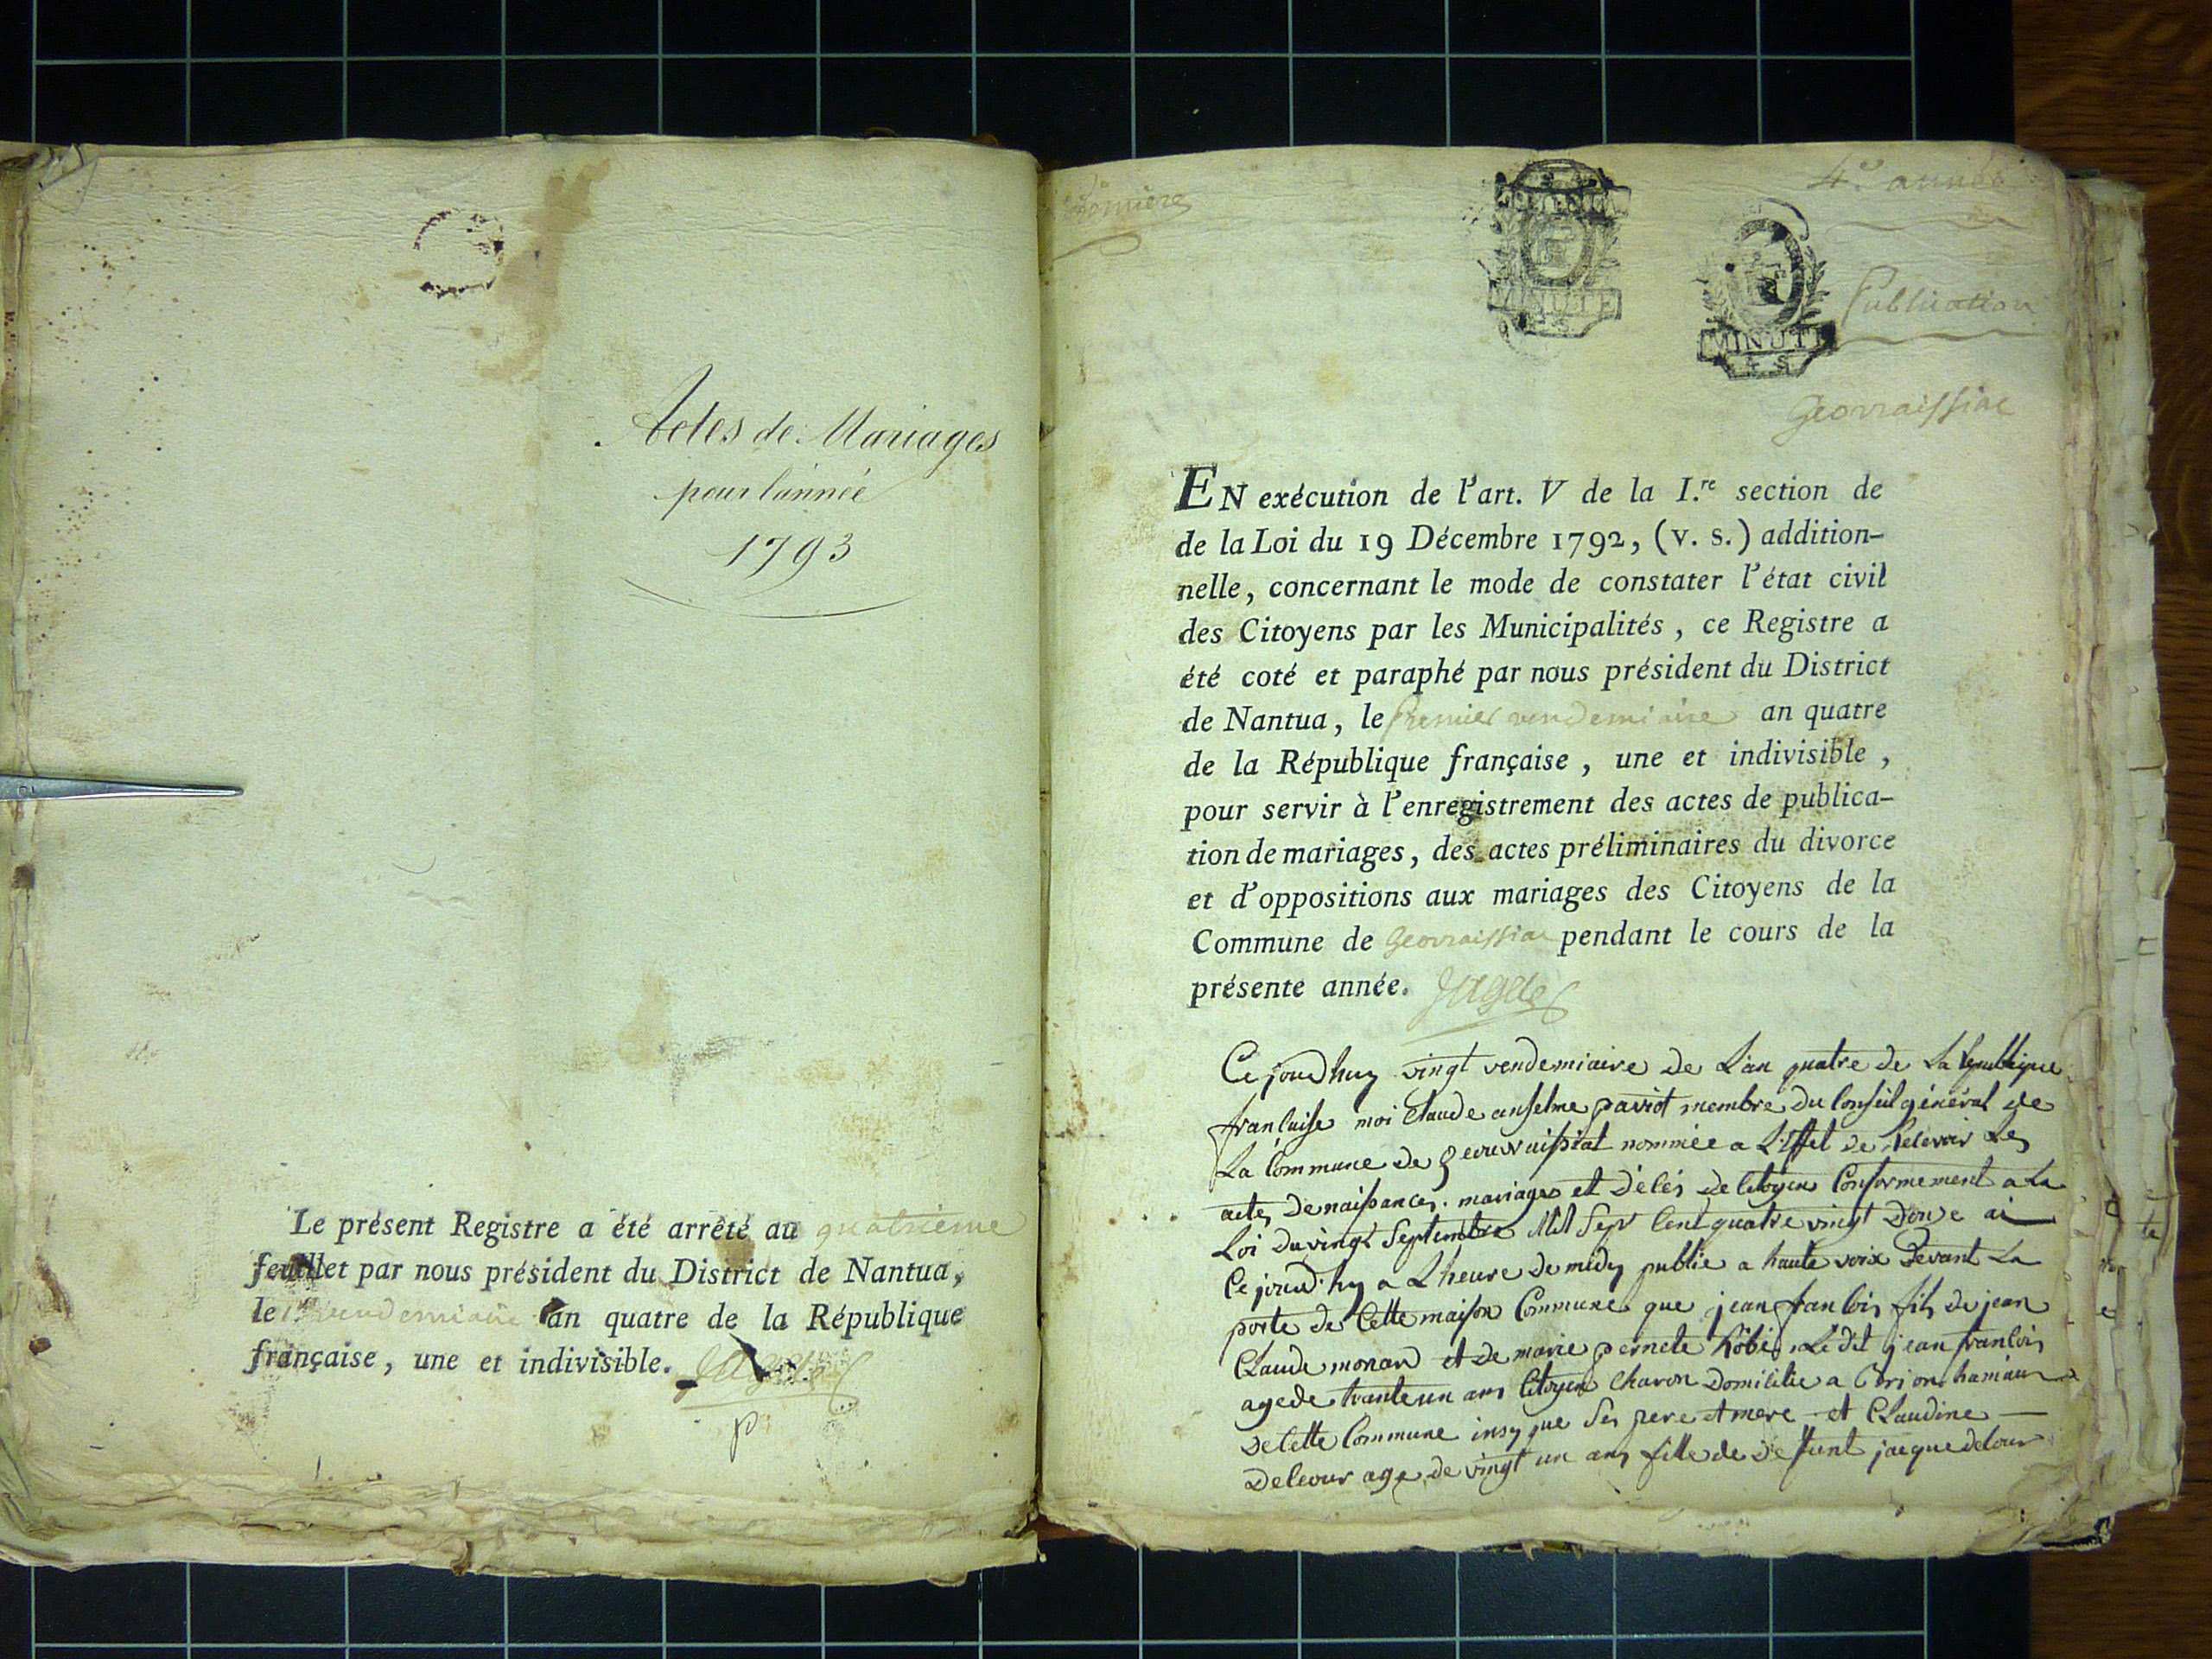 Actes de Mariages
pour l'année
1793
Le présent Registre a été arrêté au quatrième
feuillet par nous président du District de Nantua,
le 1er vendemiaire an quatre de la République
française, une et indivisible.
p
premiere
4e année
MINUTE
MINUTE
4 S
Publication
Geovraissiac
EN exécution de l'art. V de la I.re section de
de la Loi du 19 Décembre 1792, (v. s.) addition-
nelle, concernant le mode de constater l'état civil
des Citoyens par les Municipalités, ce Registre a
été coté et paraphé par nous président du District
de Nantua, le Premier vendemiaire an quatre
de la République française, une et indivisible,
pour servir à l'enregistrement des actes de publica-
tion de mariages, des actes préliminaires du divorce
et d'oppositions aux mariages des Citoyens de la
Commune de Geovraissiac pendant le cours de la
présente année.
Ce jourdhuy vingt vendemiaire de L'an quatre de La Republique
francaise moi Claude anselme paviot membre du Conseil général de
La Commune de geouvraissiat nommée a L'Effet de Recevoir Les
actes de naissances. mariages et décès de Citoyen Conformement a La
Loi du vingt Septembre Mil Sept Cent quatre vingt Douze ai
Ce jourd'hy a L'heure de midy publie a haute voix Devant La
porte de Cette maison Commune que jean francois fils de jean
Claude monard et de marie pernete Robin Le dit jean francois
age de trante un ans Citoyen Charon Domicilie a Corion hamaux
De Cette Commune insy que Ses pere et mere et Claudine
Delcour age de vingt un ans fille de defunt jacque delcour